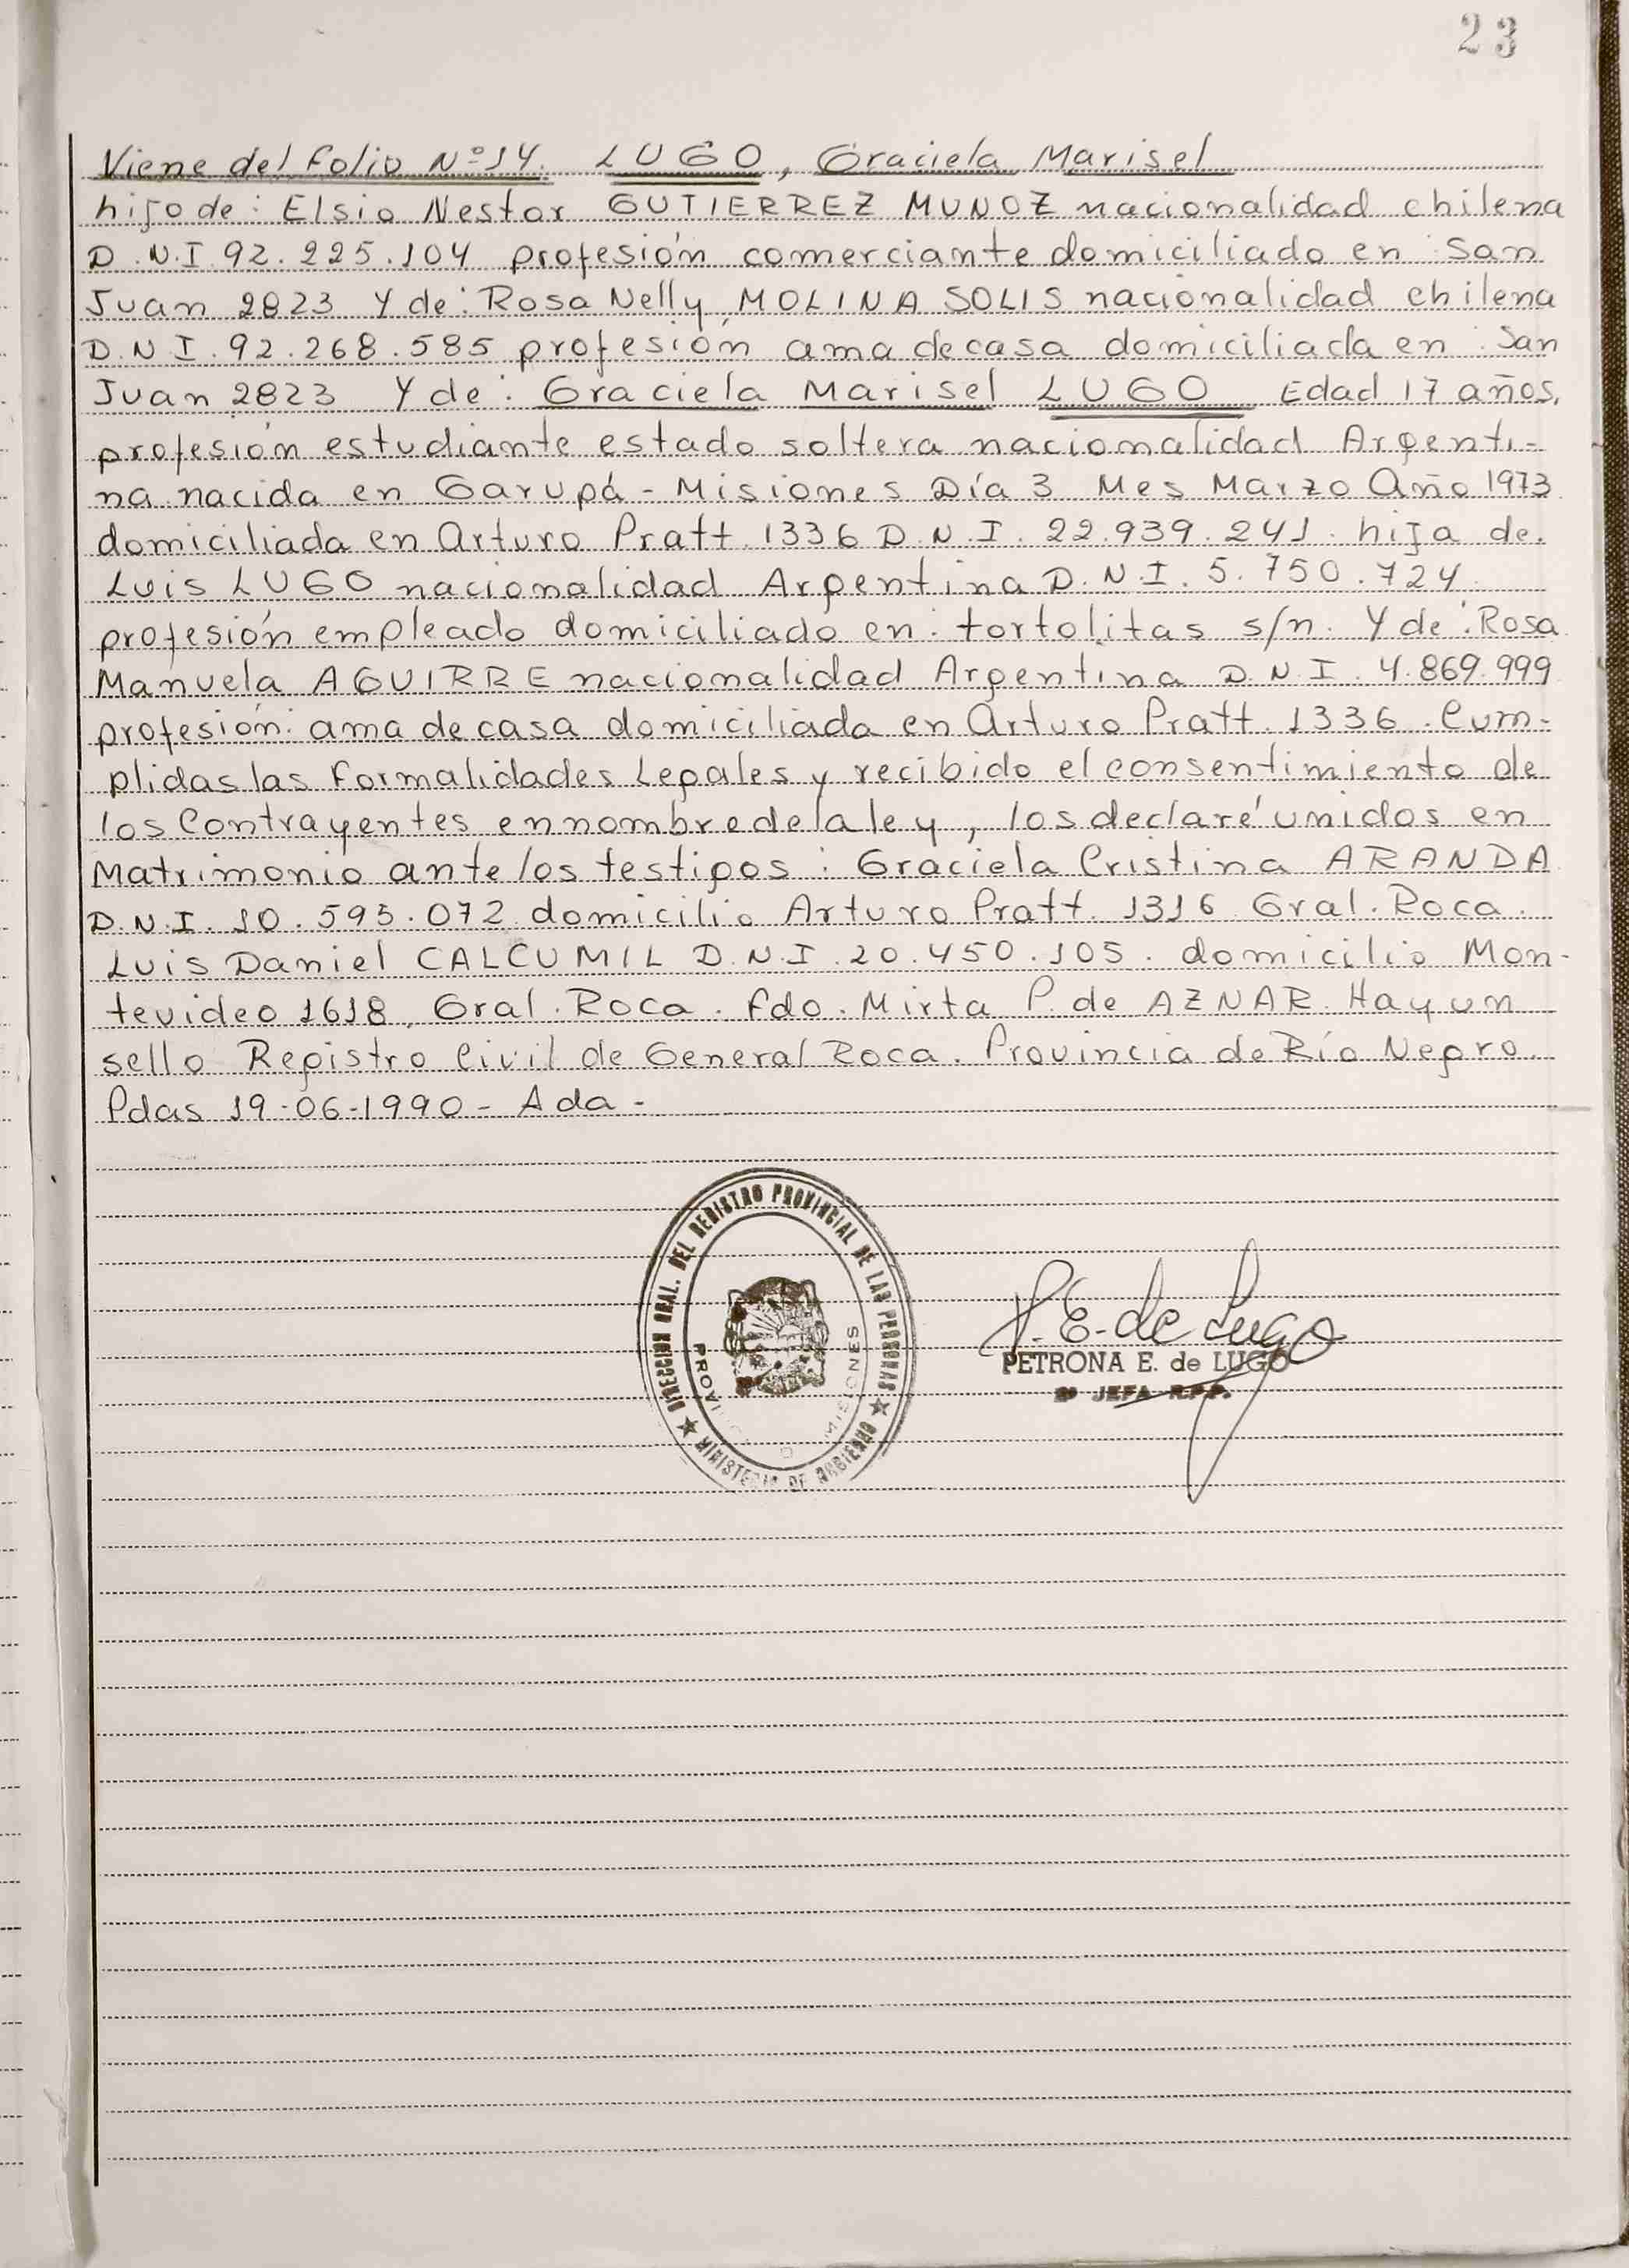 23
Viene del folio Nº 14. LUGO, Graciela Marisel
hijo de: Elsio Nestor GUTIERREZ MUNOZ nacionalidad chilena
D.N.I 92.225.104 profesión comerciante domiciliado en San
Juan 2823 Y de: Rosa Nelly MOLINA SOLIS nacionalidad chilena
D.N.I. 92.268.585 profesión ama de casa domiciliada en San
Juan 2823 Y de: Graciela Marisel LUGO Edad 17 años,
profesión estudiante estado soltera nacionalidad Argenti-
na nacida en Garupá - Misiones Día 3 Mes Marzo Año 1973
domiciliada en Arturo Pratt 1336 D.N.I. 22.939.241. hija de.
Luis LUGO nacionalidad Argentina D.N.I. 5.750.724.
profesión empleado domiciliado en: tortolitas s/n. Y de: Rosa
Manuela AGUIRRE nacionalidad Argentina D.N.I. 4.869.999
profesión: ama de casa domiciliada en Arturo Pratt 1336. Cum-
plidas las Formalidades Legales y recibido el consentimiento de
los Contrayentes en nombre de la ley, los declaré unidos en
Matrimonio ante los testigos: Graciela Cristina ARANDA
D.N.I. 10.595.072 domicilio Arturo Pratt 1316 Gral. Roca.
Luis Daniel CALCUMIL D.N.I. 20.450.105. domicilio Mon-
tevideo 1618, Gral. Roca. Fdo. Mirta P. de AZNAR. Hay un
sello Registro Civil de General Roca. Provincia de Río Negro.
Pdas 19-06-1990 - Ada -
DIRECCION GRAL. DEL REGISTRO PROVINCIAL DE LAS PERSONAS
MINISTERIO DE GOBIERNO
MISIONES
P.E. de Lugo
PETRONA E. de LUGO
2º JEFA R.P.P.